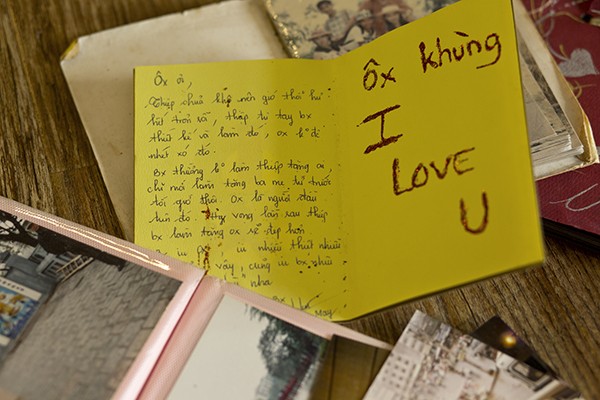 Ôx ơi,
Thiệp chưa khô nên giờ thổi hư
hết trơn rồi, thiệp tự tay bx
thiết kế và làm đó, ox k để
nhét xó đó.
Bx thường k làm thiệp tặng ai,
chỉ mới làm tặng ba mẹ từ trước
tới giờ thôi. Ox là người đầu
tiên đó. Hy vọng lần sau thiệp
bx làm tặng ox sẽ đẹp hơn
nhiều
vậy, cũng
nha
Ôx khùng
I
LOVE
U